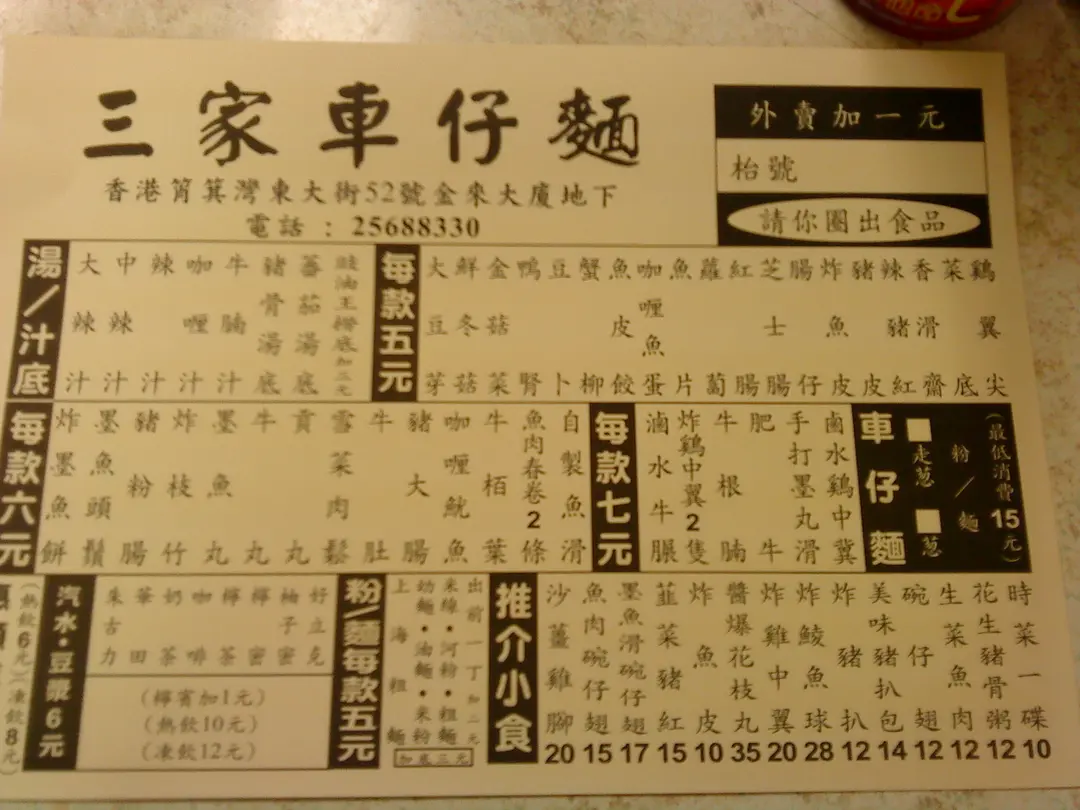 三家車仔麵
香港筲箕灣東大街52號金來大廈地下
電話：25688330
外賣加一元
枱號
請你圈出食品
湯／汁底
大辣汁
中辣汁
辣汁
咖喱汁
牛腩汁
豬骨湯底
蕃茄湯底
每款五元
大豆芽
鮮冬菇
金菇菜
鴨腎
豆卜
蟹柳
魚皮餃
咖喱魚蛋
魚片
蘿蔔
紅腸
芝士腸
腸仔
炸魚皮
豬皮
辣豬紅
香滑齋
菜底
鷄翼尖
每款六元
炸墨魚餅
墨魚頭鬚
豬粉腸
炸枝竹
墨魚丸
牛丸
貢丸
雪菜肉鬆
牛肚
豬大腸
咖喱魷魚
牛栢葉
魚肉春卷2條
自製魚滑
每款七元
滷水牛脤
炸鷄中翼2隻
牛根腩
肥牛
手打墨丸滑
鹵水鷄中冀
車仔麵
走葱
葱
粉／麵
(最低消費15元)
(熱飲6元)(凍飲8元)
汽水·豆漿6元
朱古力
華田
奶茶
咖啡
檸茶
檸蜜
柚子蜜
好立克
(檸賓加1元)
(熱飲10元)
(凍飲12元)
粉/麵每款五元
上海粗麵
幼麵·油麵·米粉
米線·河粉·粗麵
出前一丁加二元
加底三元
推介小食
沙薑雞腳 20
魚肉碗仔翅 15
墨魚滑碗仔翅 17
韮菜豬紅 15
炸魚皮 10
醬爆花枝丸 35
炸雞中翼 20
炸鯪魚球 28
炸豬扒 12
美味豬扒包 14
碗仔翅 12
生菜魚肉 12
花生豬骨粥 12
時菜一碟 10